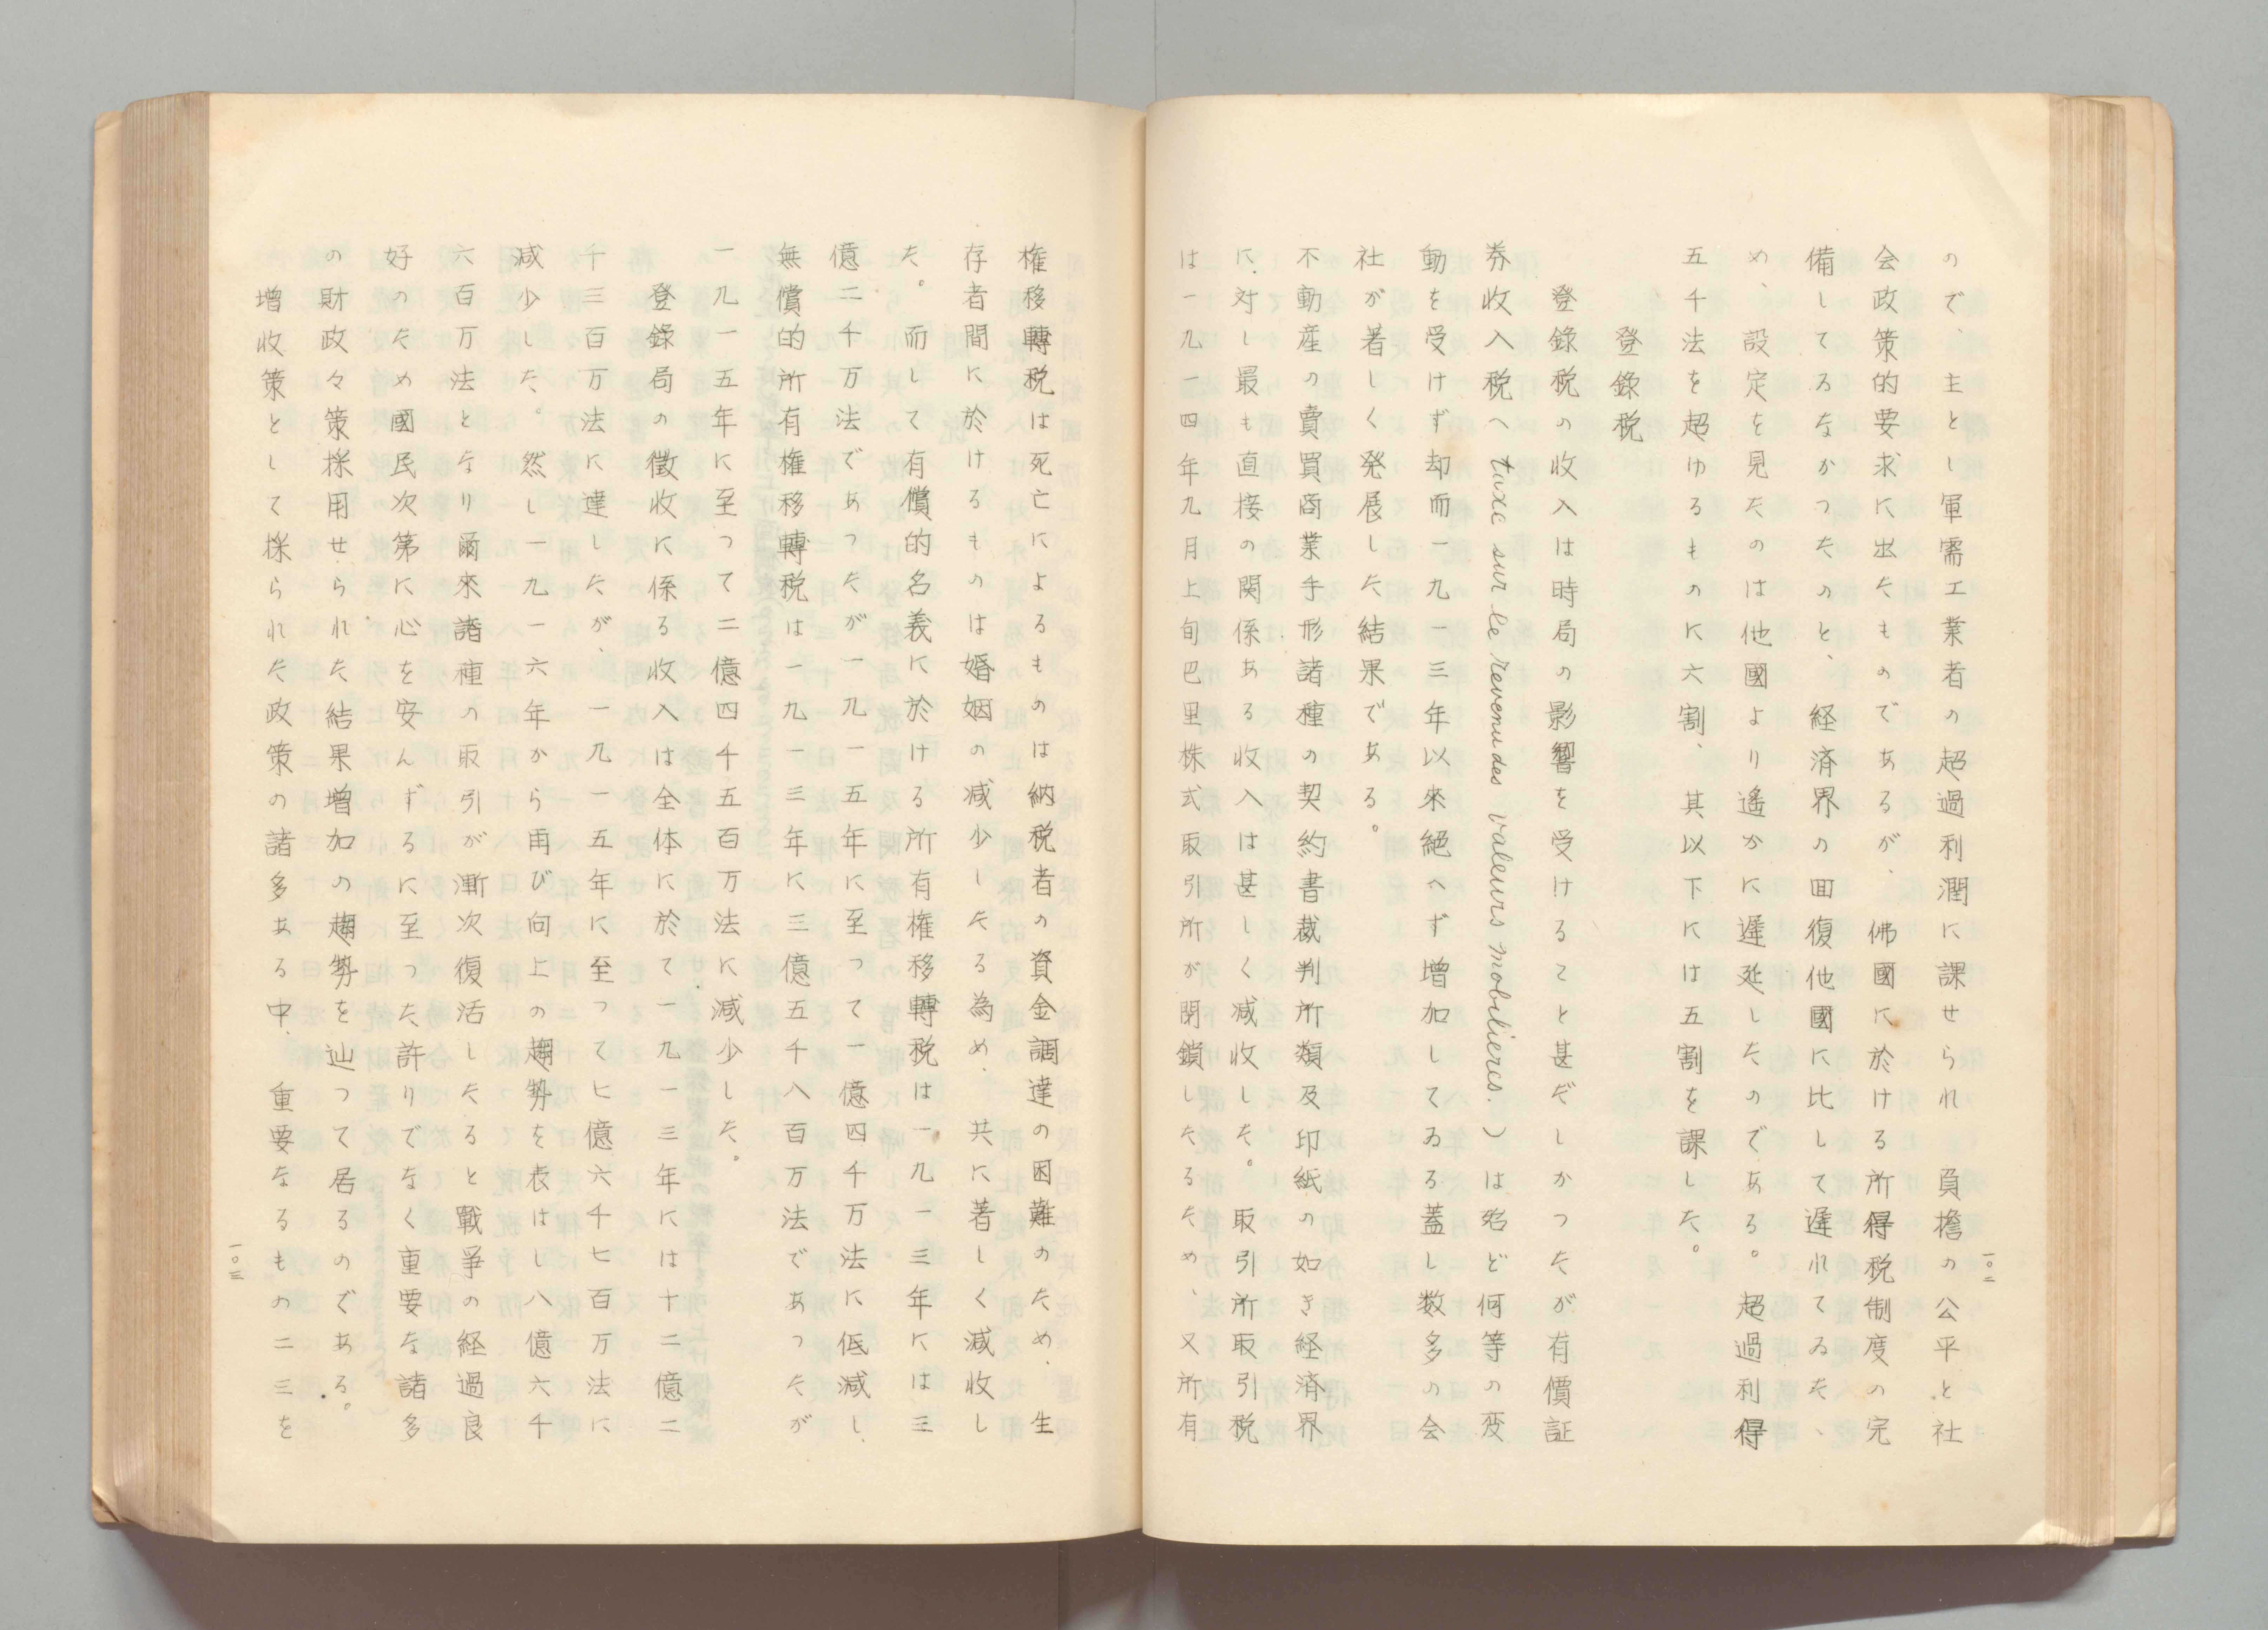 ので、主とし軍需工業者の超過利潤に課せられ 負擔の公平と社
会政策的要求に出たものであるが、佛國に於ける所得税制度の完
備してるなかつたのと、経済界の回復他國に比して遅れてゐた、
め、設定を見たのは他國より遙かに遅延したのである。超過利得
五千法を超ゆるものに六割、其以下には五割を課した。
登錄税
登錄税の收入は時局の影響を受けること甚だしかつたが有價証
券收入税へ taxe sur le revenu des valeurs mobilieres.）は殆ど何等の変
動を受けず却而一九一三年以來絕へず增加してゐる蓋し数多の会
社が著しく発展した結果である。
不動產の賣買商業手形諸種の契約書裁判所類及印紙の如き経済界
に対し最も直接の関係ある收入は甚しく减收した。取引所取引税
は一九一四年九月上旬巴里株式取引所が閉鎖したるため、又所有
一〇二
権移轉税は死亡によるものは納税者の資金調達の困難のため、生
存者間に於けるものは婚姻の减少したる為め、共に著しく减收し
た。而して有償的名義に於ける所有権移轉税は一九一三年には三
億二千万法であつたが一九一五年に至つて一億四千万法に低减し、
無償的所有権移轉税は一九一三年に三億五千八百万法であつたが
一九一五年に至つて二億四千五百万法に减少した。
登錄局の徵收に係る收入は全体に於て一九一三年には十二億二
千三百万法に達したが、一九一五年に至つて七億六千七百万法に
减少した。然し一九一六年から再び向上の趨勢を表はし八億六千
六百万法となり爾來諸種の取引が漸次復活したると戰争の経過良
好のため國民次第に心を安んずるに至つた許りでなく重要な諸多
の財政々策採用せられた結果增加の趨勢を辿つて居るのである。
增收策として採られた政策の諸多ある中、重要なるもの二三を
一〇三